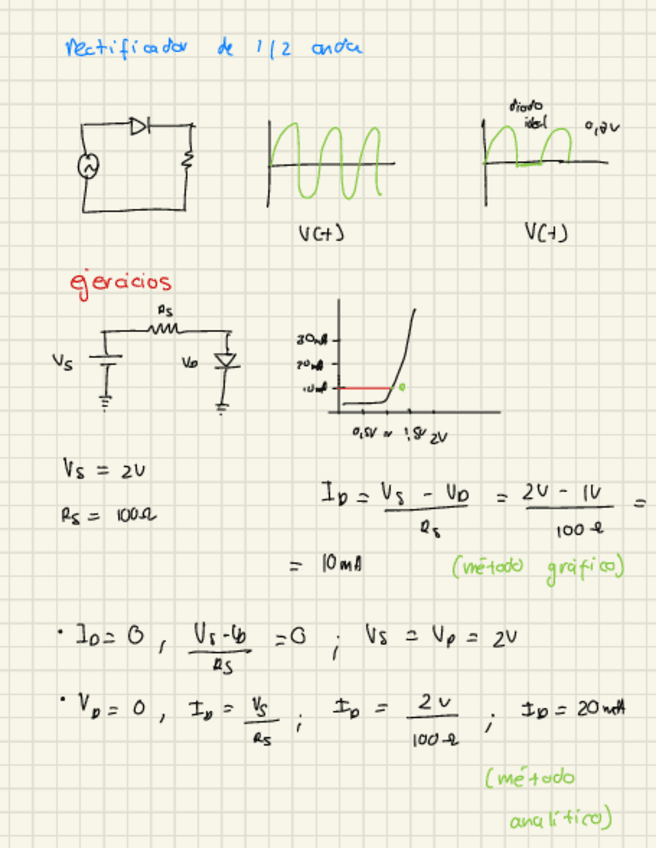 rectificador de 1/2 onda
diodo
ideal
0,2V
V(t)
V(t)
ejercicios
Rs
Vs
VD
30mA
20mA
10mA
0,5V 1V 1,5V 2V
Vs = 2V
Rs = 100Ω
ID = Vs - VD / Rs = 2V - 1V / 100Ω =
= 10mA
(método gráfico)
• ID = 0, Vs - VD / Rs = 0 ; Vs = VD = 2V
• VD = 0, ID = Vs / Rs ; ID = 2V / 100Ω ; ID = 20mA
(método
analítico)